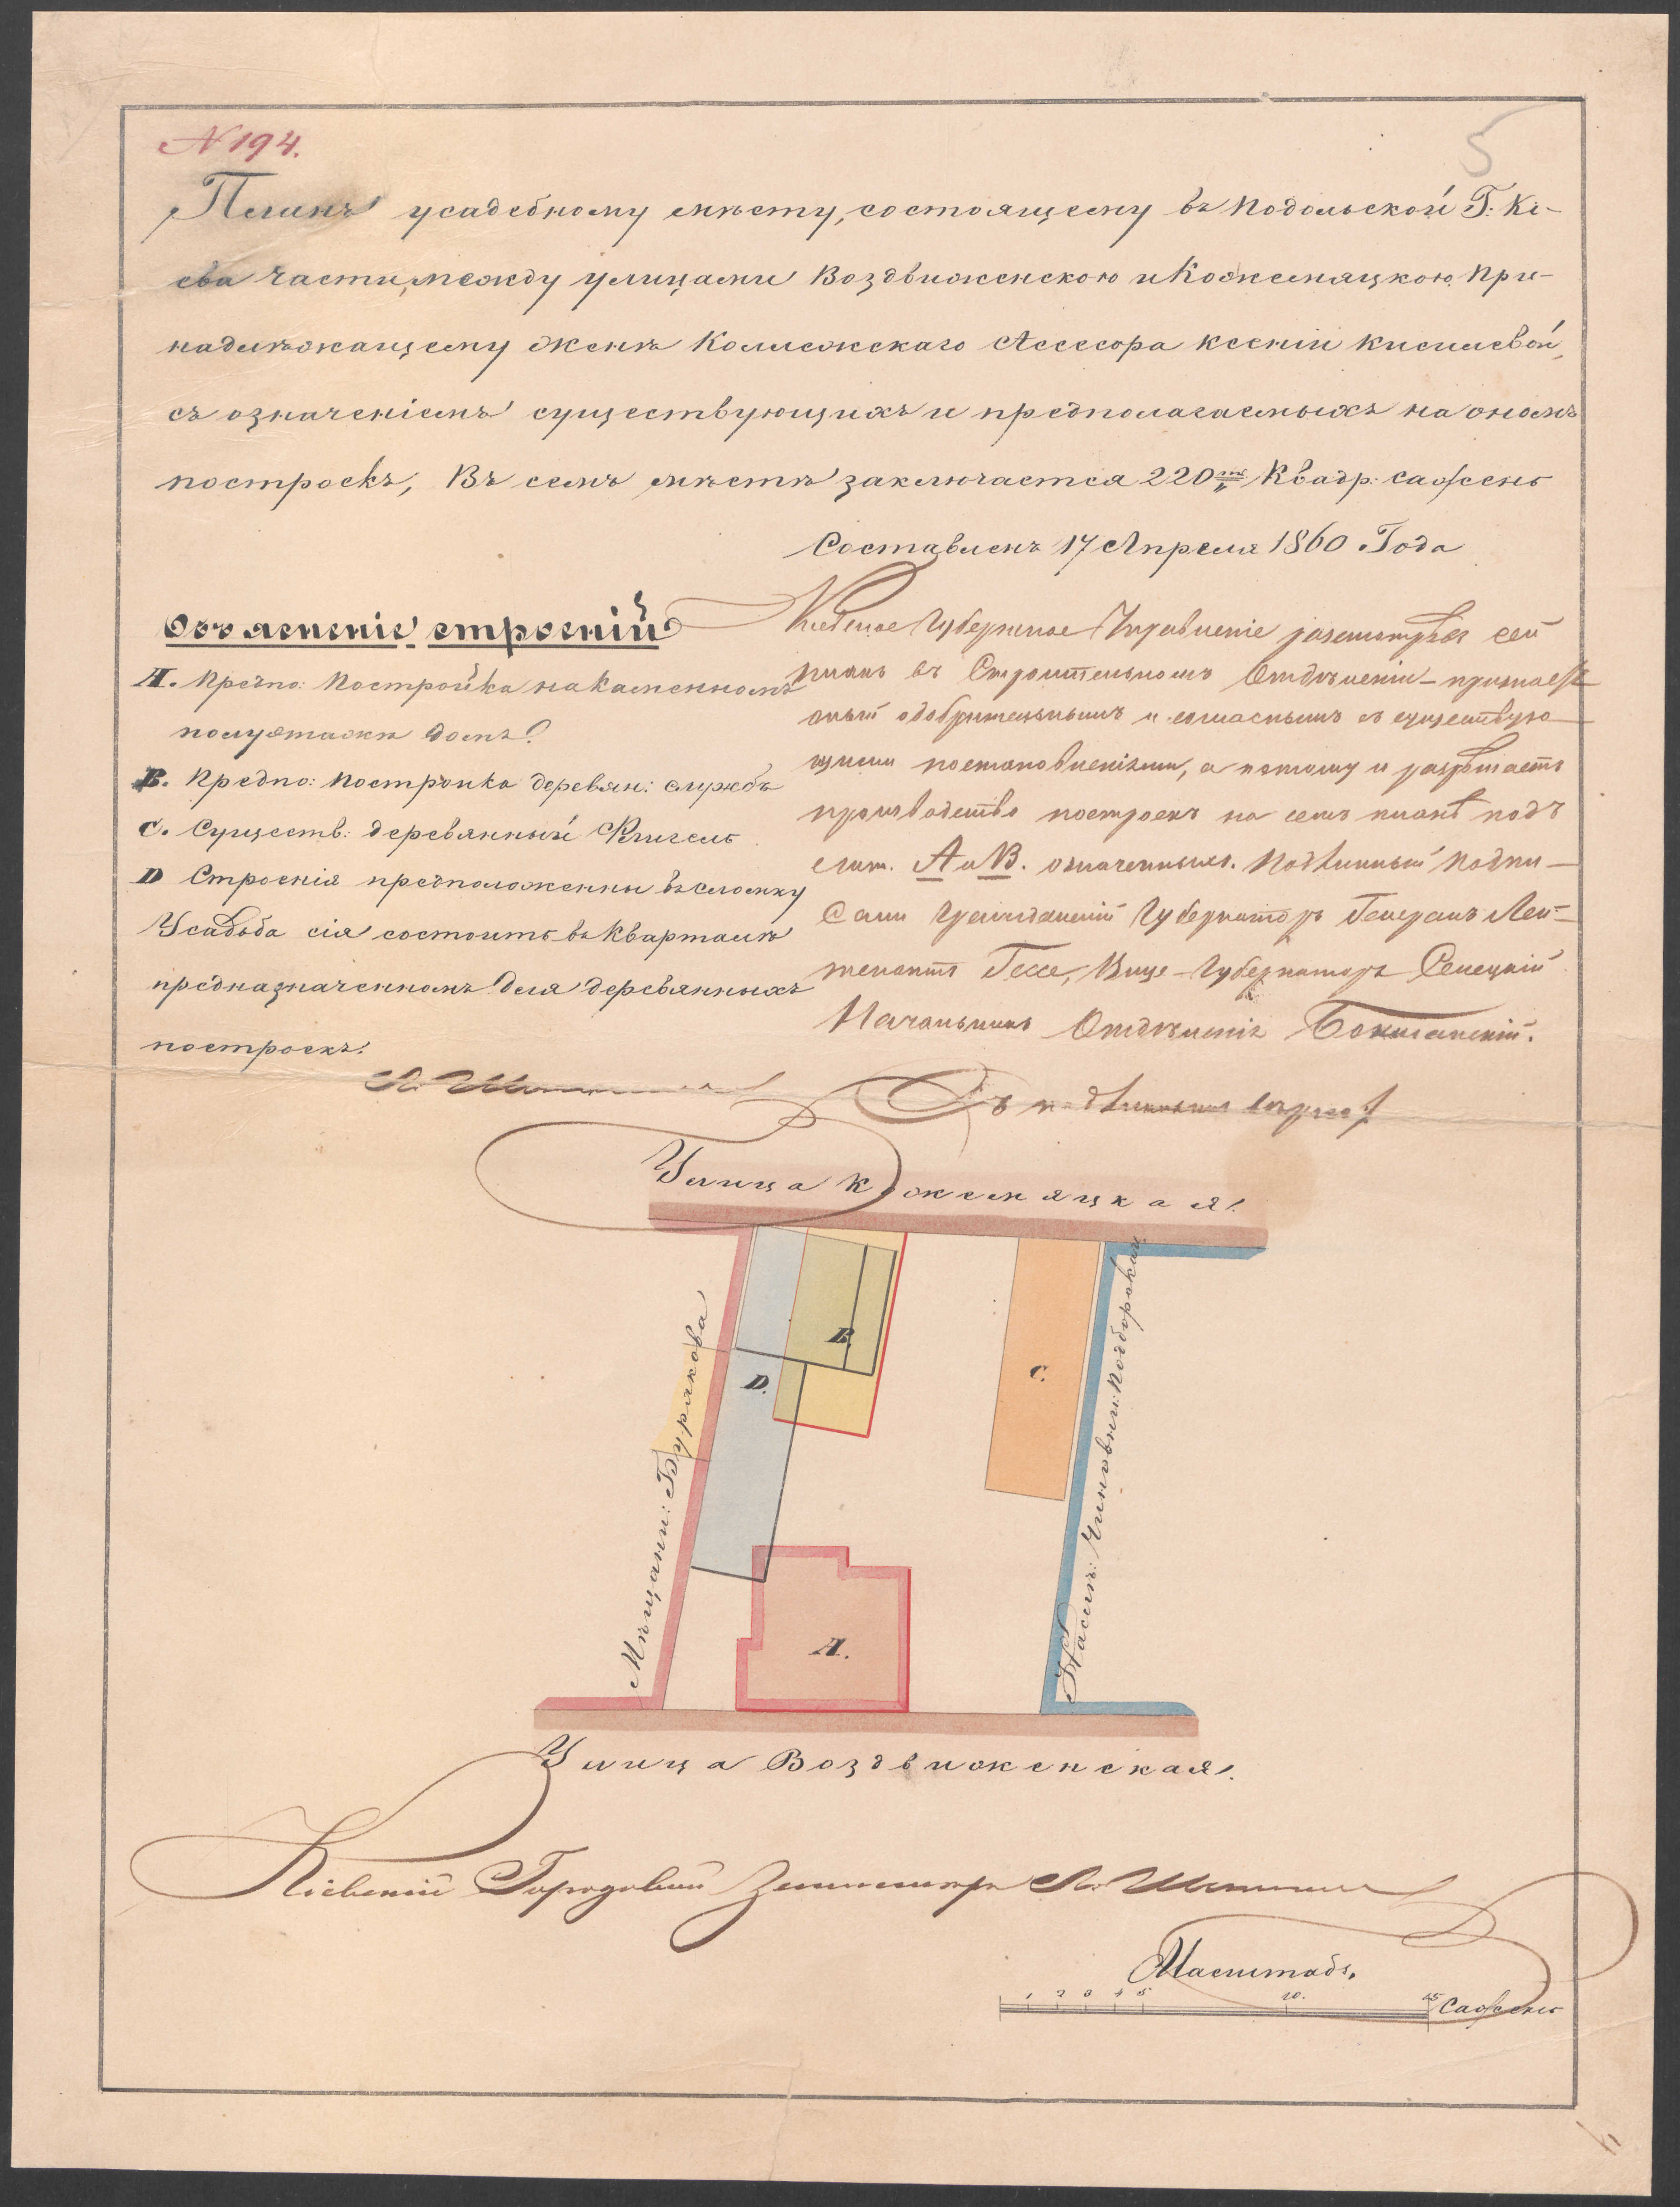 N 194.
5
Планъ усадебному мѣсту, состоящему въ Подольской Г: Кі-
ева части, между улицами Воздвиженскою и Кожемяцкою, при-
надлѣжащему женѣ Коллежскаго Асесора Ксеніи Киселевой,
съ означеніемъ существующихъ и предполагаемыхъ на ономъ
построекъ, Въ семъ мѣстѣ заключается 220 Квадр: сажень
Составленъ 17 Апреля 1860 Года
Объясненіе строеній
А. Предпо: Постройка на Каменномъ
полуэтажѣ домъ.
В. Предпо: Постройка деревян: службъ
С. Существ: деревянный Флигель
D Строенія предположенны въ сломку
Усадьба сія состоитъ въ Кварталѣ
предназначенномъ для деревянныхъ
построекъ.
Киевское Губернское Правленіе разсмотрѣвъ сей
планъ въ Строительномъ Отдѣленіи - признаетъ
оный одобрительнымъ и согласнымъ съ существую
щими постановленіями, а потому и разрѣшаетъ
производство построекъ на семъ планѣ подъ
лит. А и В. означенныхъ. Подлинный подпи-
сали Гражданскій Губернаторъ Генералъ Лей-
тенантъ Гессе, Вице-Губернаторъ Селецкій
Начальникъ Отдѣленія
Съ подлиннымъ вѣрно:
Улица Кожемяцкая.
Мѣщани: Бурякова
Наслѣ: Чиновни: Подборской
В.
D.
С.
А.
Улица Воздвиженская.
Кіевскій Городовый Землемѣръ
Масштабъ.
1 2 3 4 5 10. 15 Сажень